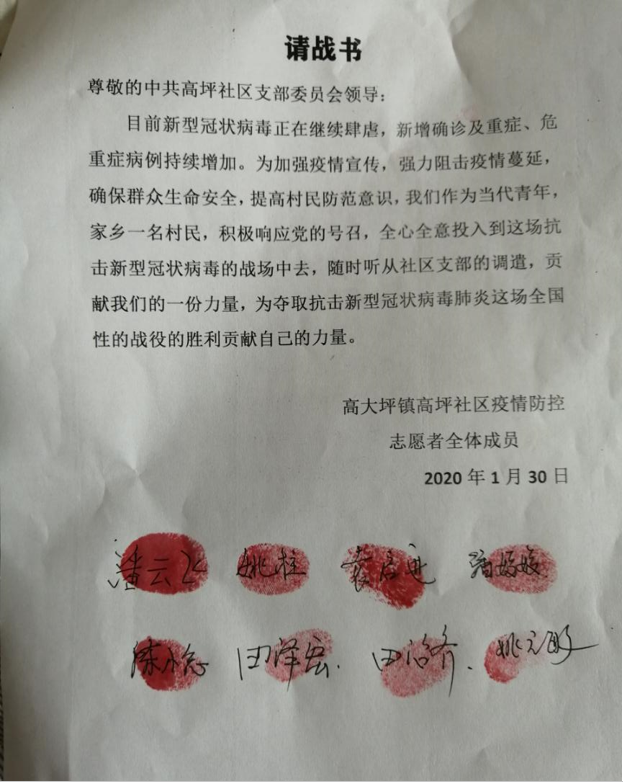 请战书
尊敬的中共高坪社区支部委员会领导：
目前新型冠状病毒正在继续肆虐，新增确诊及重症、危
重症病例持续增加。为加强疫情宣传，强力阻击疫情蔓延，
确保群众生命安全，提高村民防范意识，我们作为当代青年，
家乡一名村民，积极响应党的号召，全心全意投入到这场抗
击新型冠状病毒的战场中去，随时听从社区支部的调遣，贡
献我们的一份力量，为夺取抗击新型冠状病毒肺炎这场全国
性的战役的胜利贡献自己的力量。
高大坪镇高坪社区疫情防控
志愿者全体成员
2020 年 1 月 30 日
姚桂
田泽宏.